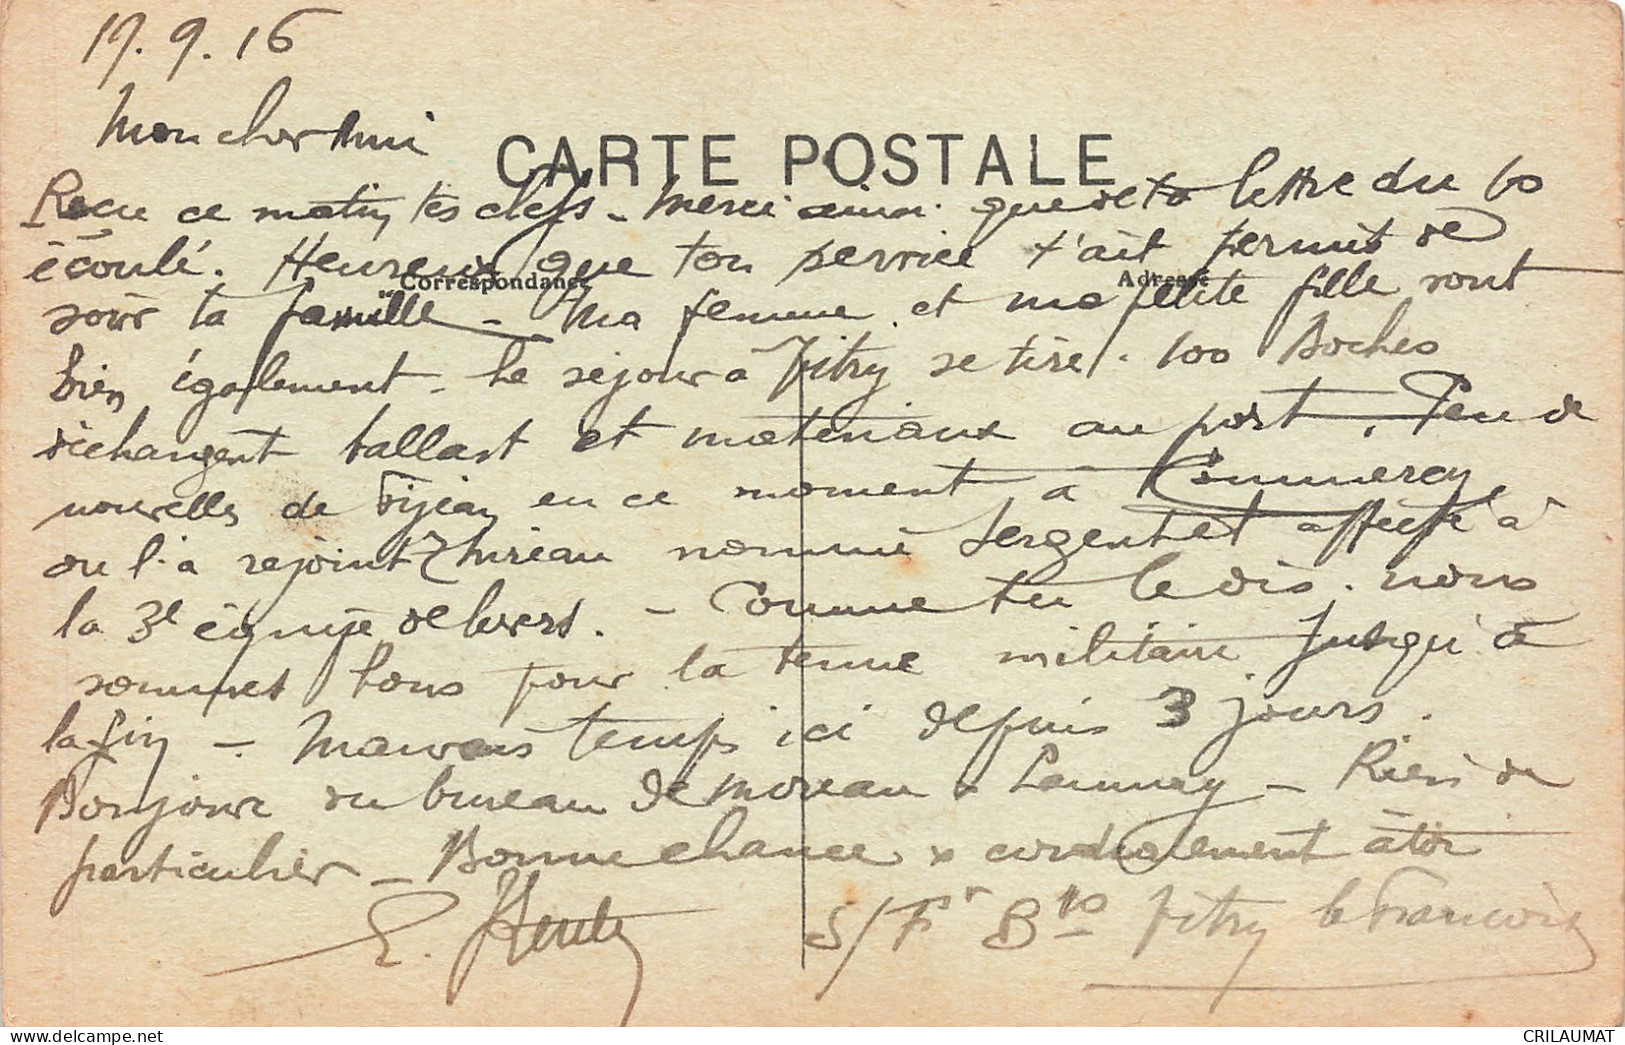 17.9.16
Mon cher Ami
CARTE POSTALE
Reçu ce matin tes clefs - Merci ainsi que de ta lettre du 10
écoulé. Heureux que ton service t'ait permit de
Correspondance
Adresse
voir ta famille - Ma femme et ma petite fille vont
bien également - Le séjour à Vitry se tire. 100 Boches
déchangent ballast et matériaux au port. Peu de
nouvelles de en ce moment à Commercy
ou l'a rejoint Thureau nommé Sergent et affecté à
la 3e équipe de - Comme tu le dis. nous
sommes bons pour la tenue militaire jusqu'à
la fin - Mauvais temps ici depuis 3 jours.
Bonjour du bureau de Moreau x Launay - Rien de
particulier - Bonne chance x cordialement à toi
E.
S/Fr Bto Vitry le François
CRILAUMAT